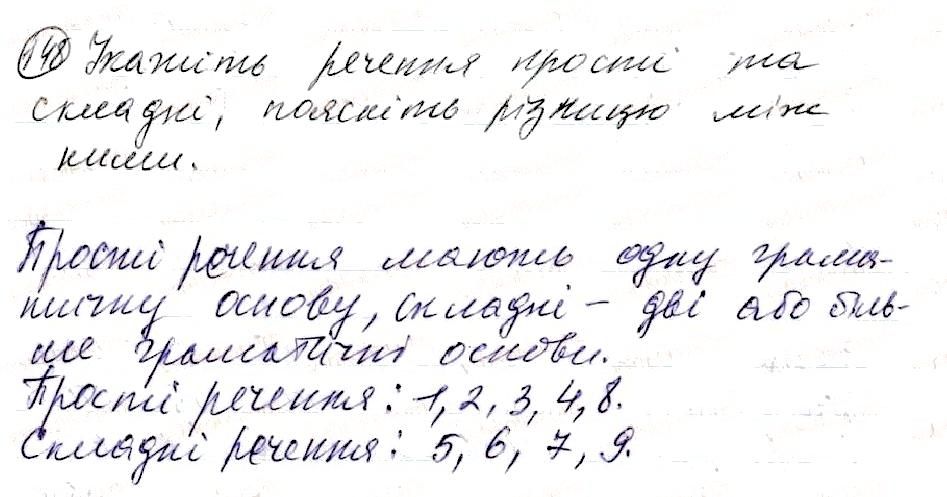 148 Укажіть речення прості та
складні, поясніть різницю між
ними.
Прості речення мають одну грама-
тичну основу, складні – дві або біль-
ше граматичні основи.
Прості речення: 1, 2, 3, 4, 8.
Складні речення: 5, 6, 7, 9.